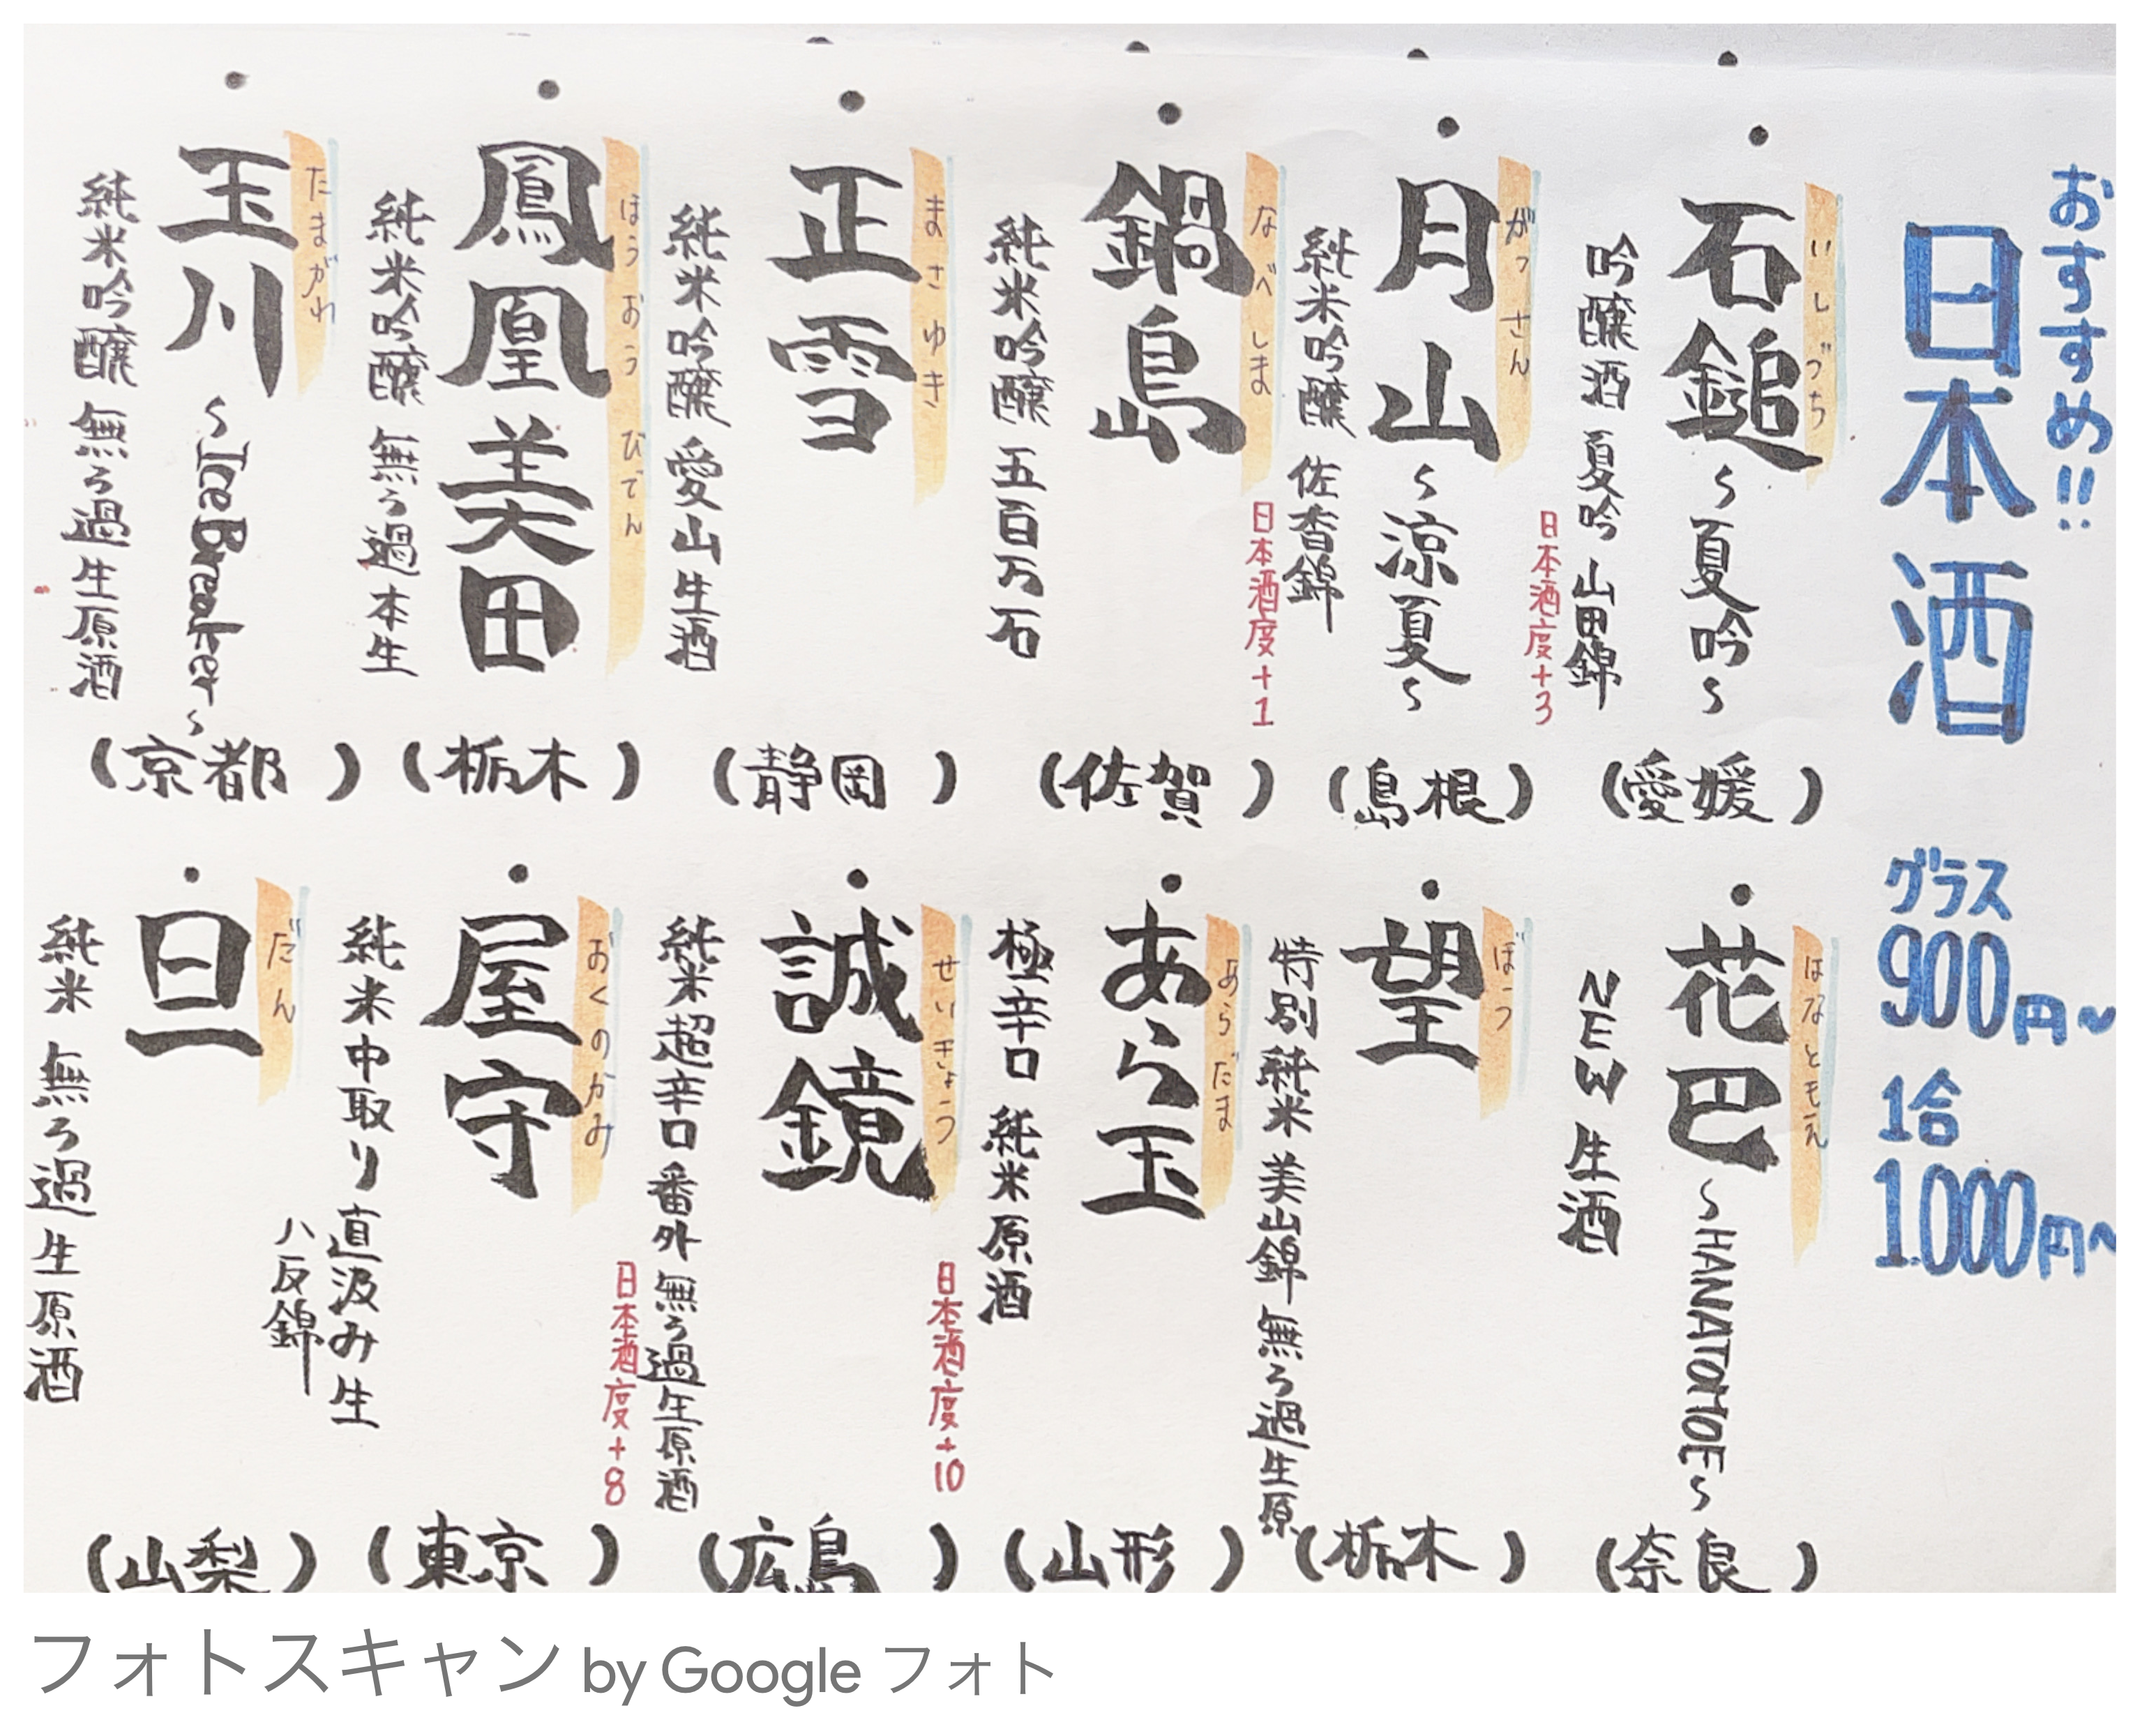 おすすめ!!
日本酒
グラス
900円〜
1合
1.000円〜
・石鎚〜夏吟〜
いしづち
吟醸酒 夏吟 山田錦
日本酒度+3
(愛媛)
・月山〜涼夏〜
がっさん
純米吟醸 佐香錦
日本酒度+1
(島根)
・鍋島
なべしま
純米吟醸 五百万石
(佐賀)
・正雪
まさゆき
純米吟醸 愛山 生酒
(静岡)
・鳳凰美田
ほうおうびでん
純米吟醸 無ろ過本生
(栃木)
・玉川〜Ice Breaker〜
たまがわ
純米吟醸 無ろ過生原酒
(京都)
・花巴〜HANATOMOE〜
はなともえ
NEW 生酒
(奈良)
・望
ぼう
特別純米 美山錦 無ろ過生原
(栃木)
・あら玉
あらだま
極辛口 純米原酒
日本酒度+10
(山形)
・誠鏡
せいきょう
純米超辛口 番外 無ろ過生原酒
日本酒度+8
(広島)
・屋守
おくのかみ
純米中取り直汲み生
八反錦
(東京)
・旦
だん
純米 無ろ過生原酒
(山梨)
フォトスキャン by Google フォト